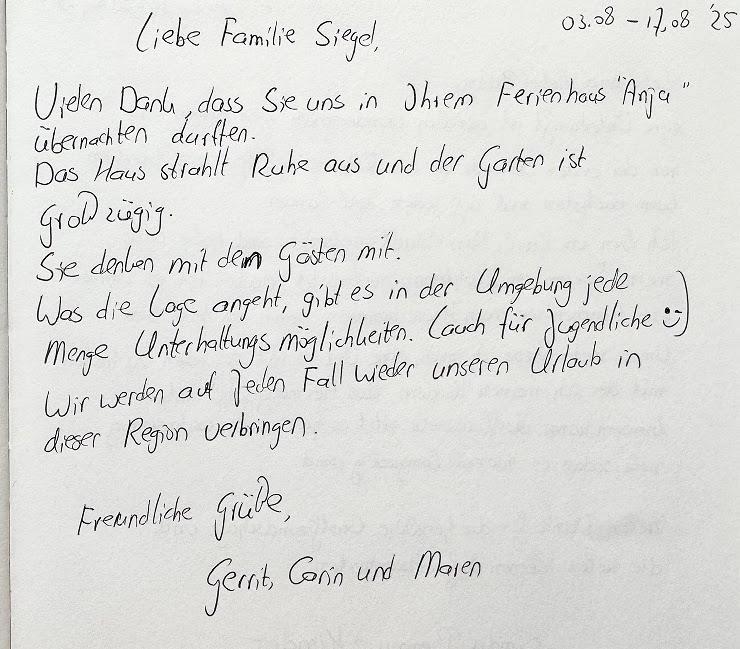 03.08 - 17.08 '25
Liebe Familie Siegel,
Vielen Dank, dass Sie uns in Ihrem Ferienhaus "Anja"
übernachten durften.
Das Haus strahlt Ruhe aus und der Garten ist
Großzügig.
Sie denken mit dem Gästen mit.
Was die Lage angeht, gibt es in der Umgebung jede
Menge Unterhaltungsmöglichkeiten. (auch für Jugendliche :-))
Wir werden auf jeden Fall wieder unseren Urlaub in
dieser Region verbringen.
Freundliche Grüße,
Gerrit, Carin und Maren